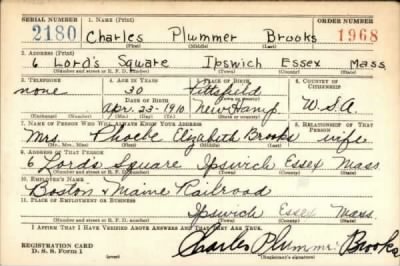 SERIAL NUMBER 1. NAME (Print) ORDER NUMBER
2180 Charles Plummer Brooks 1968
(First) (Middle) (Last)
2. ADDRESS (Print)
6 Lord's Square Ipswich Essex Mass
(Number and street or R. F. D. number) (Town) (County) (State)
3. TELEPHONE 4. AGE IN YEARS 5. PLACE OF BIRTH 6. COUNTRY OF CITIZENSHIP
none 30 Pittsfield
DATE OF BIRTH (Town or county)
Apr. 23-1910 New Hamp U.S.A
(Exchange) (Number) (Mo.) (Day) (Yr.) (State or country)
7. NAME OF PERSON WHO WILL ALWAYS KNOW YOUR ADDRESS 8. RELATIONSHIP OF THAT PERSON
Mrs. Phoebe Elizabeth Brooks wife
(Mr., Mrs., Miss) (First) (Middle) (Last)
9. ADDRESS OF THAT PERSON
6 Lord's Square Ipswich Essex Mass
(Number and street or R. F. D. number) (Town) (County) (State)
10. EMPLOYER'S NAME
Boston & Maine Railroad
11. PLACE OF EMPLOYMENT OR BUSINESS
Ipswich Essex Mass.
(Number and street or R. F. D. number) (Town) (County) (State)
I AFFIRM THAT I HAVE VERIFIED ABOVE ANSWERS AND THAT THEY ARE TRUE.
REGISTRATION CARD
D. S. S. Form 1
Charles Plummer Brooks
(Registrant's signature)